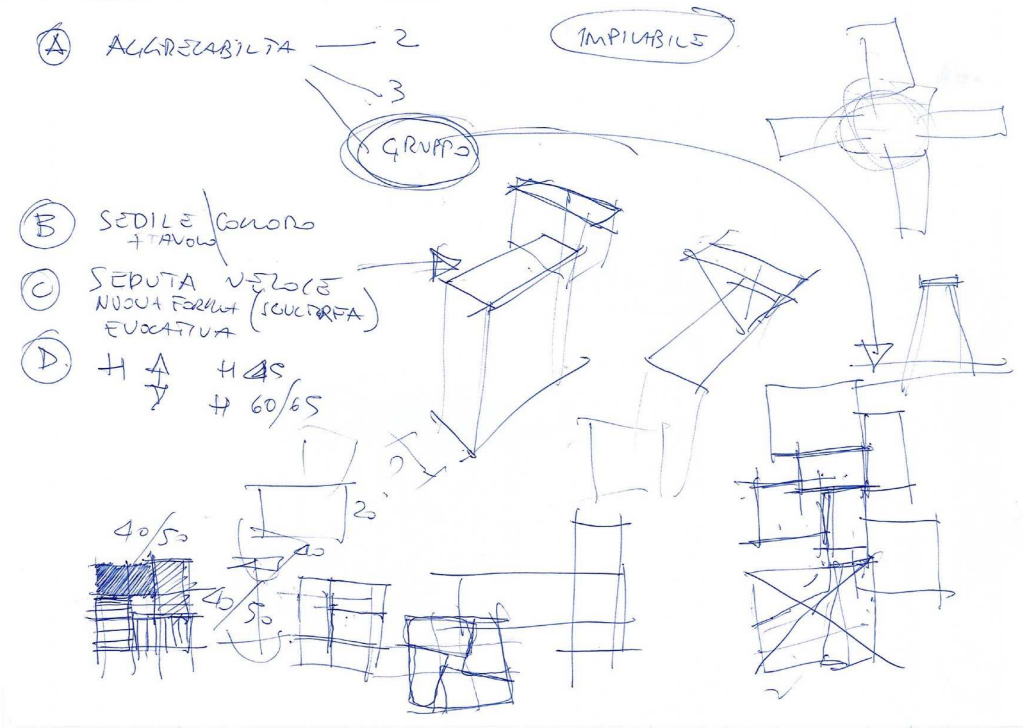 A AGGREGABILTA — 2
IMPILABILE
3
GRUPPO
B SEDILE / COMODO
A TAVOLO
C SEDUTA VELOCE
NUOVA FORMA (SCULTOREA)
EVOCATIVA
D H H 45
H 60/65
20
40/50
40
40/50